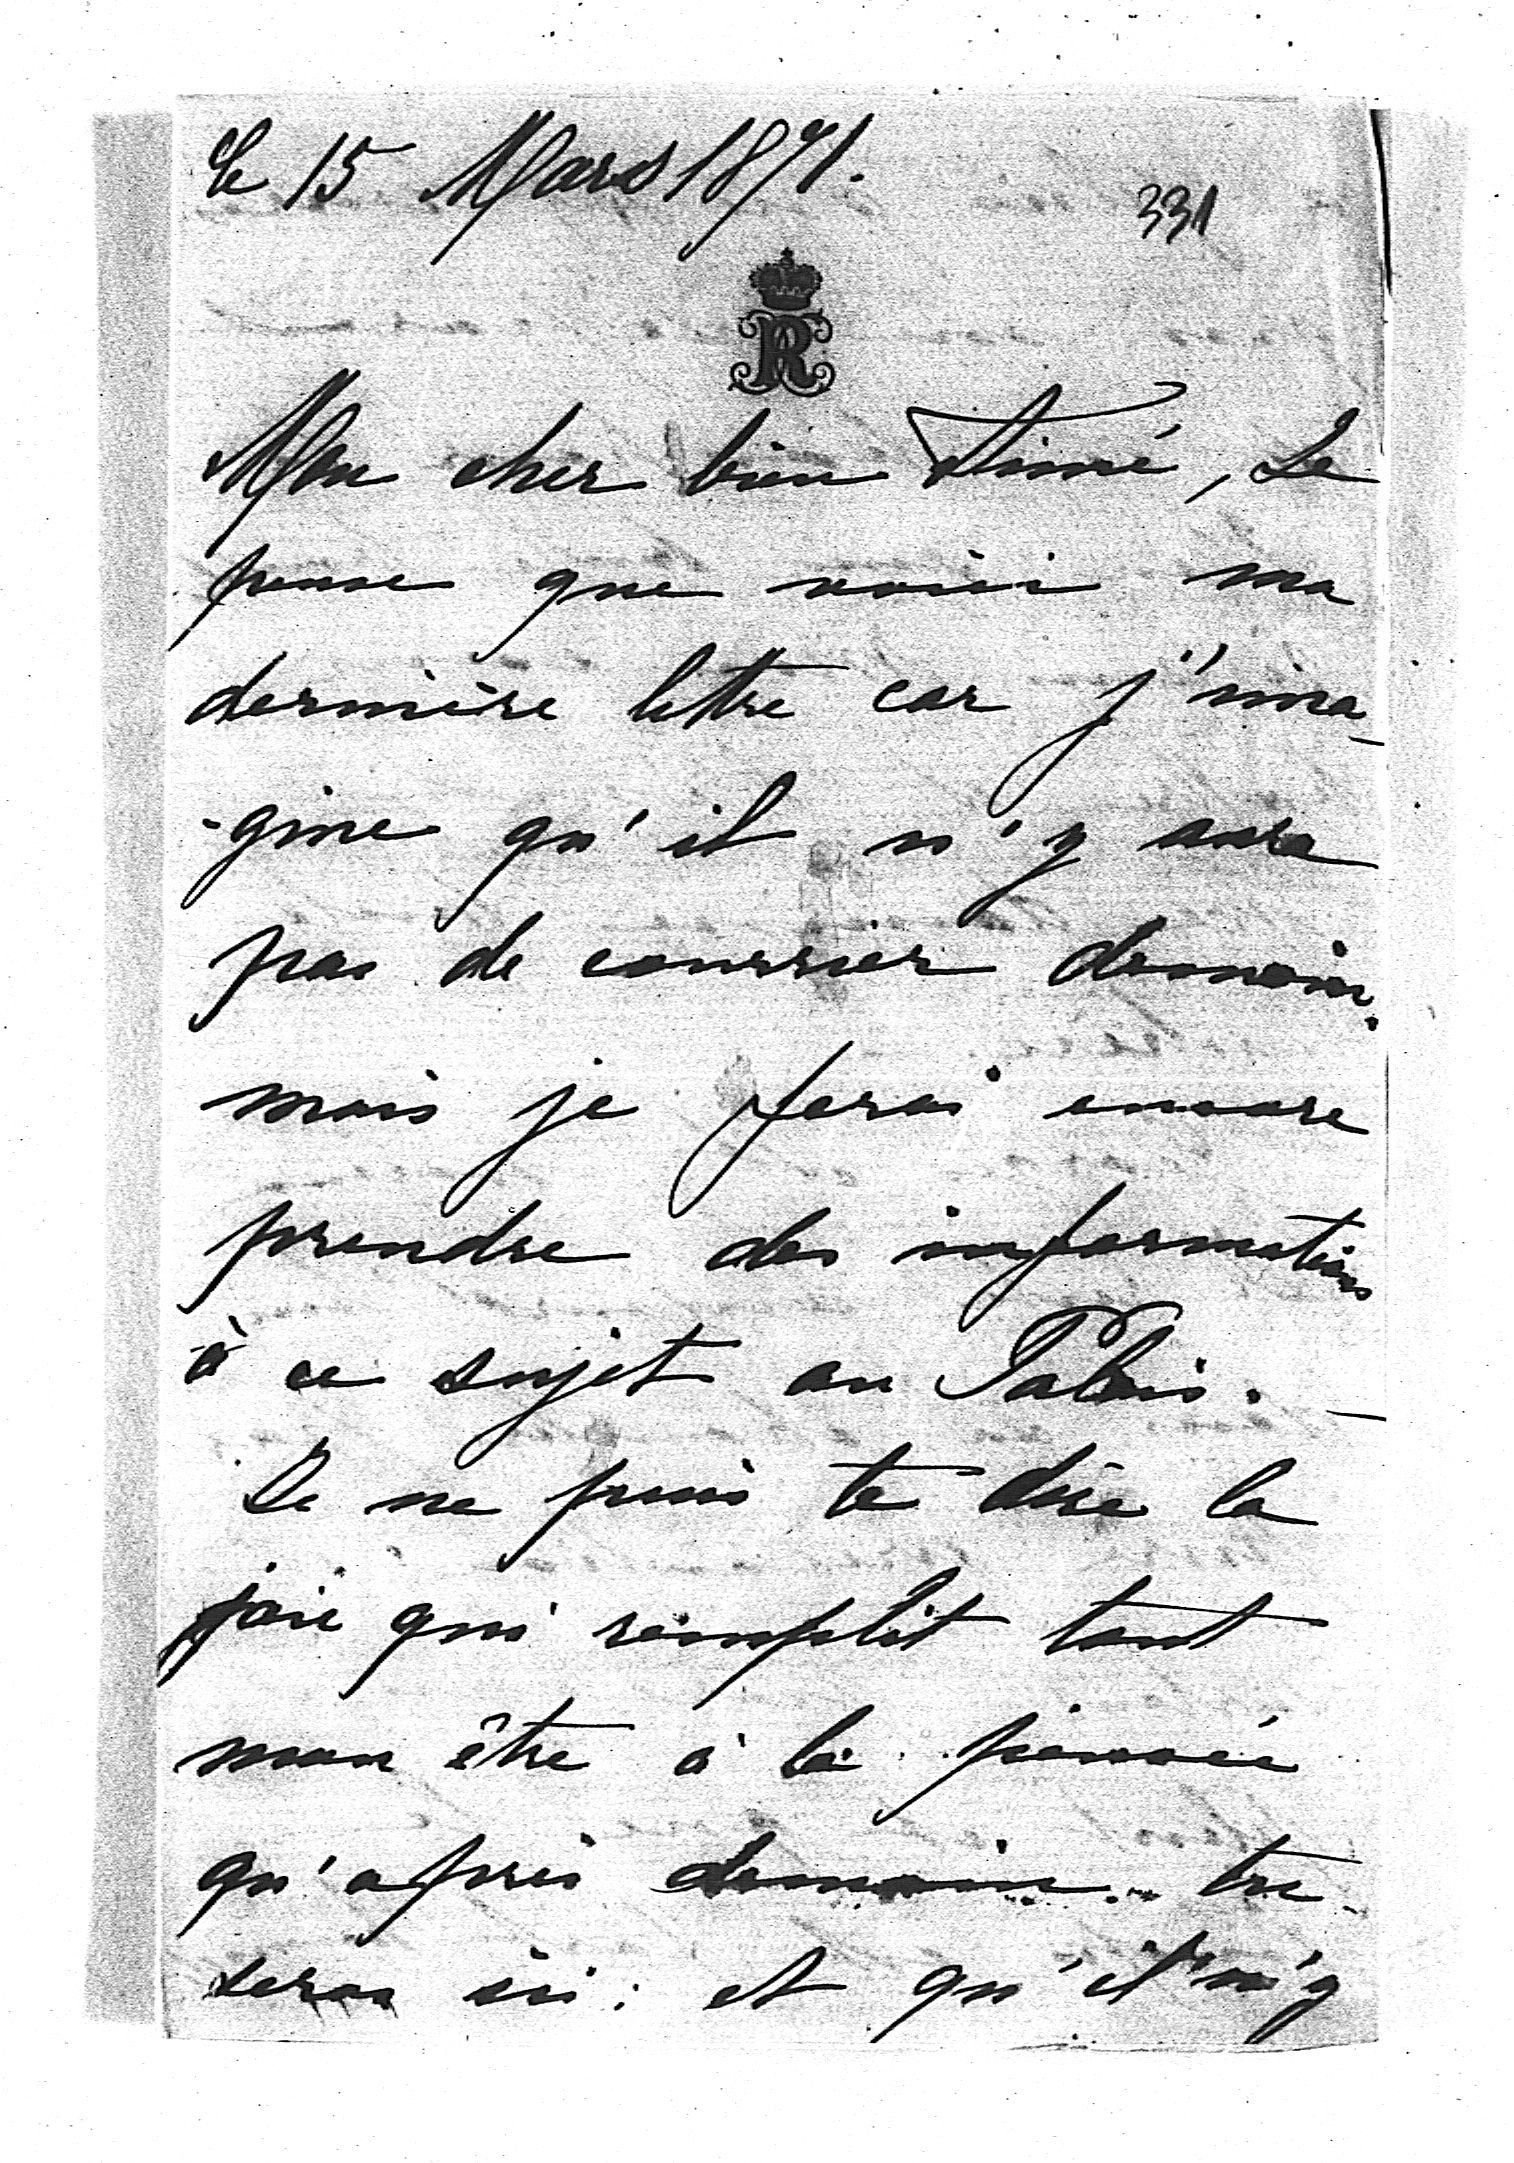 Le 15 Mars 1871.
331
R
Mon cher bien Aimé, Je
pense que voici ma
dernière lettre car j'ima-
-gine qu'il n'y aura
pas de courrier demain.
mais je ferai encore
prendre des informations
à ce sujet au Palais. —
Je ne puis te dire la
joie qui remplit tout
mon être à la pensée
qu'après demain tu
seras ici: et qu'il n'y